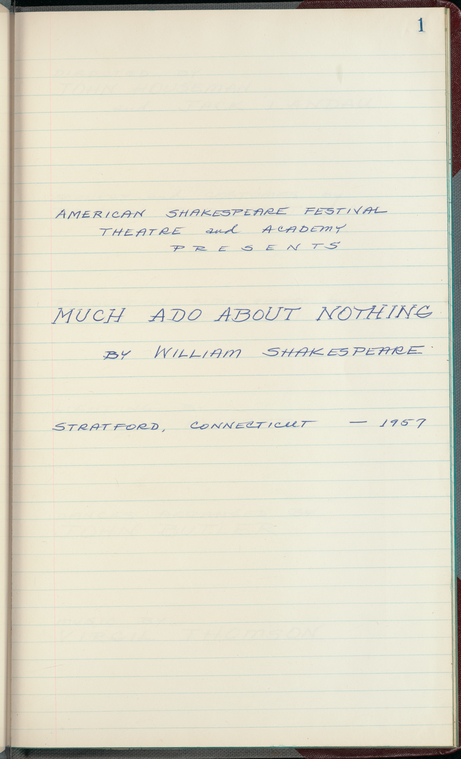 1
AMERICAN SHAKESPEARE FESTIVAL
THEATRE and ACADEMY
PRESENTS
MUCH ADO ABOUT NOTHING
BY WILLIAM SHAKESPEARE
STRATFORD, CONNECTICUT — 1957